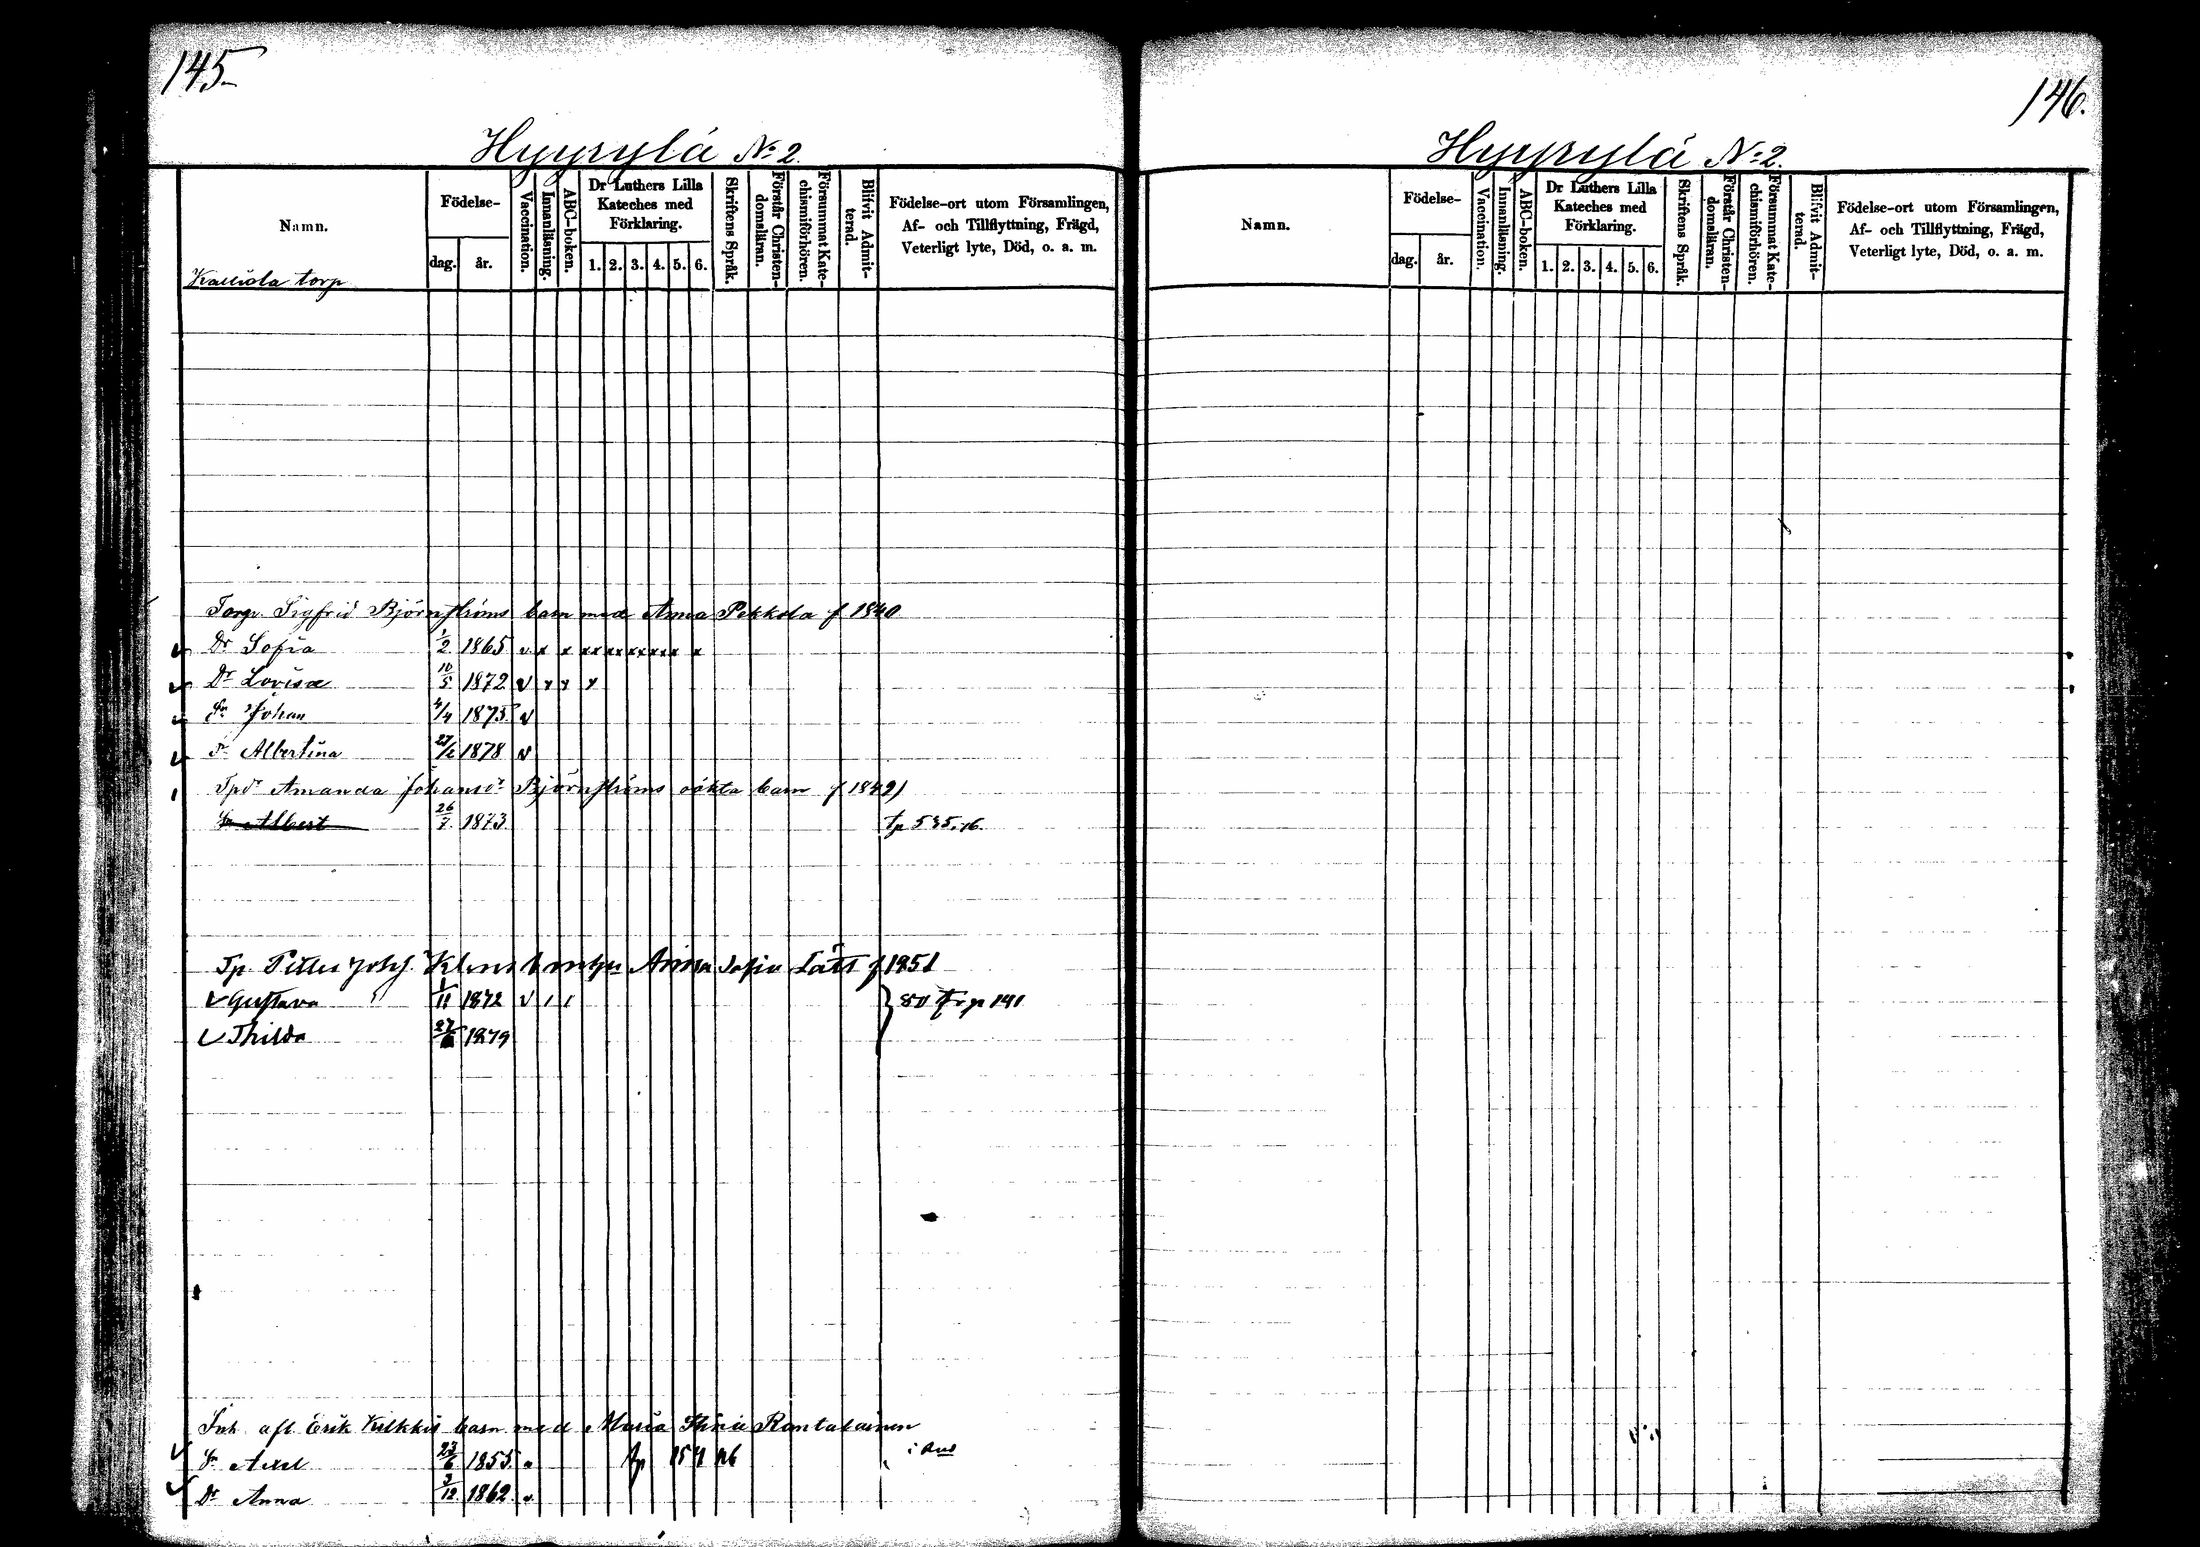 145
Hyyrylä No: 2.
Namn.
Födelse-
dag. år.
Vaccination.
Innanläsning.
ABC-boken.
Dr Luthers Lilla
Kateches med
Förklaring.
1. 2. 3. 4. 5. 6.
Skriftens Språk.
Förstår Christen-
domsläran.
Försummat Kate-
chismiförhören.
Blifvit Admit-
terad.
Födelse-ort utom Församlingen,
Af- och Tillflyttning, Frägd,
Veterligt lyte, Död, o. a. m.
Kalliola torp
Torp. Sigfrid Björnströms barn med Anna Pekkola f 1840
Dr Sofia 1/2 1865 v x x xx xx xx xx x x
Dr Lovisa 10/5 1872 v x x x
Sn Johan 4/4 1875 v
Dr Albertina 1878 v
Johansdr Björnströms oäkta barn f 1842)
Sn Albert 26/7 1873 tp 535.76.
Tp Anna Sofia f 1851
Gustava 1/11 1872 v / /
} 80 Trp 141
Thilda 1879
Inh. afl. Erik barn med Maria Rantalainen
Sn Axel 23/6 1855 v
Dr Anna 3/12 1862 v
146.
Hyyrylä No: 2.
Namn.
Födelse-
dag. år.
Vaccination.
Innanläsning.
ABC-boken.
Dr Luthers Lilla
Kateches med
Förklaring.
1. 2. 3. 4. 5. 6.
Skriftens Språk.
Förstår Christen-
domsläran.
Försummat Kate-
chismiförhören.
Blifvit Admit-
terad.
Födelse-ort utom Församlingen,
Af- och Tillflyttning, Frägd,
Veterligt lyte, Död, o. a. m.